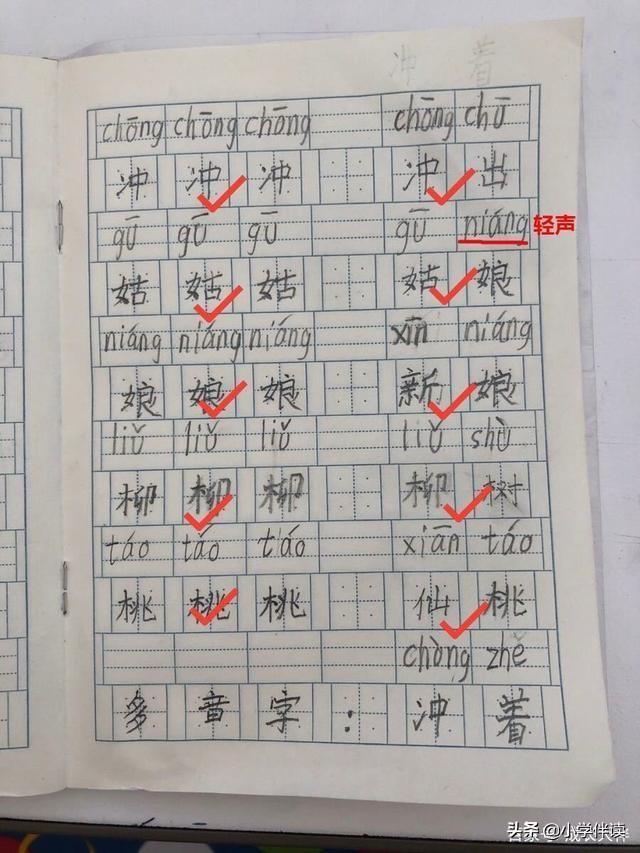 冲 着
chōng chōng chōng chōng chū
冲 冲 冲 冲 出
gū gū gū gū niáng 轻声
姑 姑 姑 姑 娘
niáng niáng niáng xīn niáng
娘 娘 娘 新 娘
liǔ liǔ liǔ liǔ shù
柳 柳 柳 柳 树
táo táo táo xiān táo
桃 桃 桃 仙 桃
chòng zhě
多 音 字 : 冲 着
头条 @小学伴读